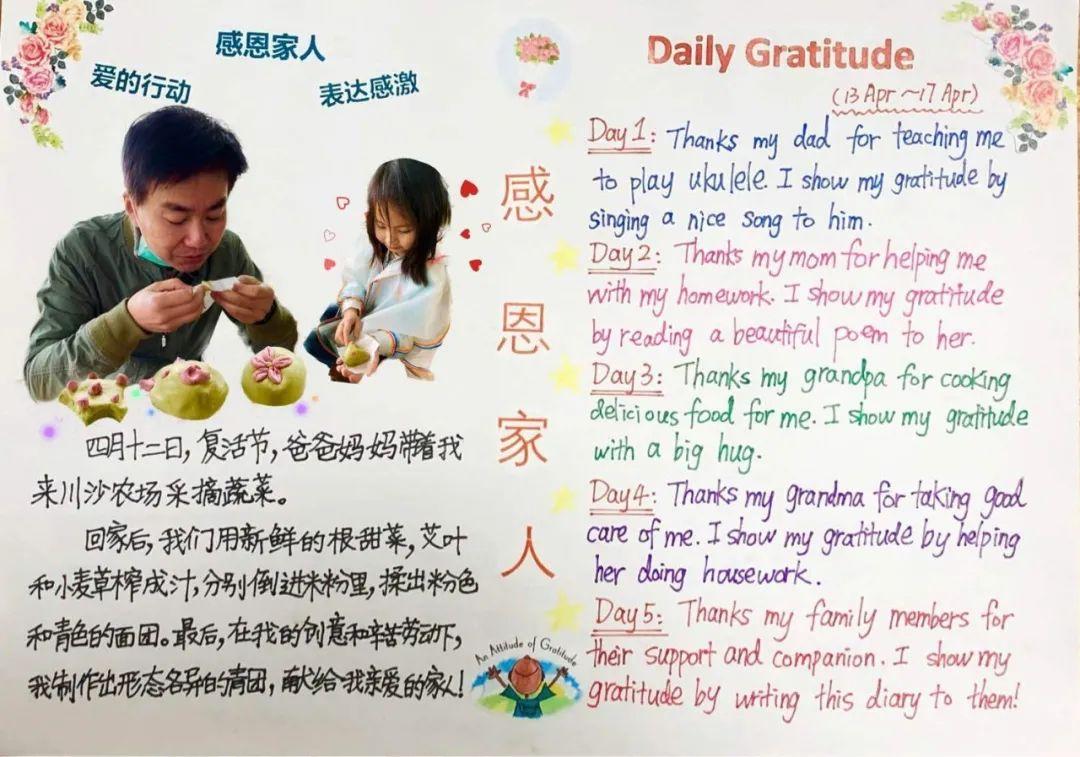 感恩家人
爱的行动
表达感激
四月十二日,复活节,爸爸妈妈带着我
来川沙农场采摘蔬菜。
回家后,我们用新鲜的根甜菜,艾叶
和小麦草榨成汁,分别倒进米粉里,揉出粉色
和青色的面团。最后,在我的创意和辛苦劳动下,
我制作出形态各异的青团,献给我亲爱的家人!
感
恩
家
人
An Attitude of Gratitude
Daily Gratitude
(13 Apr~17 Apr)
Day 1: Thanks my dad for teaching me
to play ukulele. I show my gratitude by
singing a nice song to him.
Day 2: Thanks my mom for helping me
with my homework. I show my gratitude
by reading a beautiful poem to her.
Day 3: Thanks my grandpa for cooking
delicious food for me. I show my gratitude
with a big hug.
Day 4: Thanks my grandma for taking good
care of me. I show my gratitude by helping
her doing housework.
Day 5: Thanks my family members for
their support and companion. I show my
gratitude by writing this diary to them!